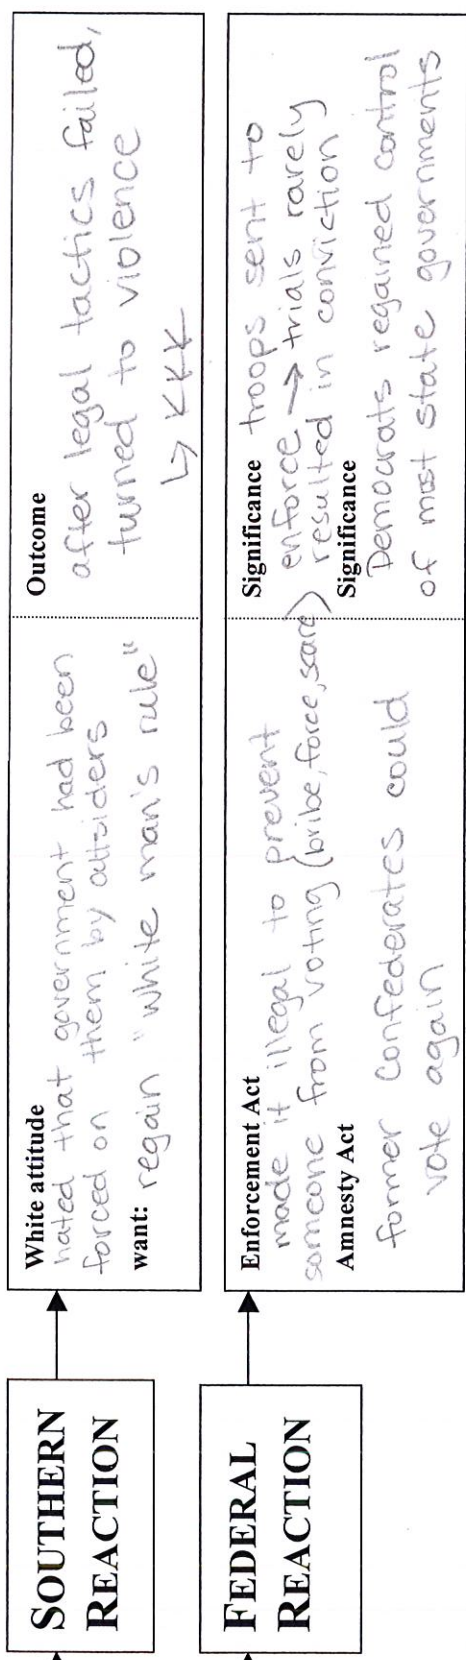 SOUTHERN
REACTION
White attitude
hated that government had been
forced on them by outsiders
want: regain "white man's rule"
Outcome
after legal tactics failed,
turned to violence
↳ KKK
FEDERAL
REACTION
Enforcement Act
made it illegal to prevent
someone from voting (bribe, force, scare)
Amnesty Act
former Confederates could
vote again
Significance troops sent to
enforce → trials rarely
resulted in conviction
Significance
Democrats regained control
of most state governments